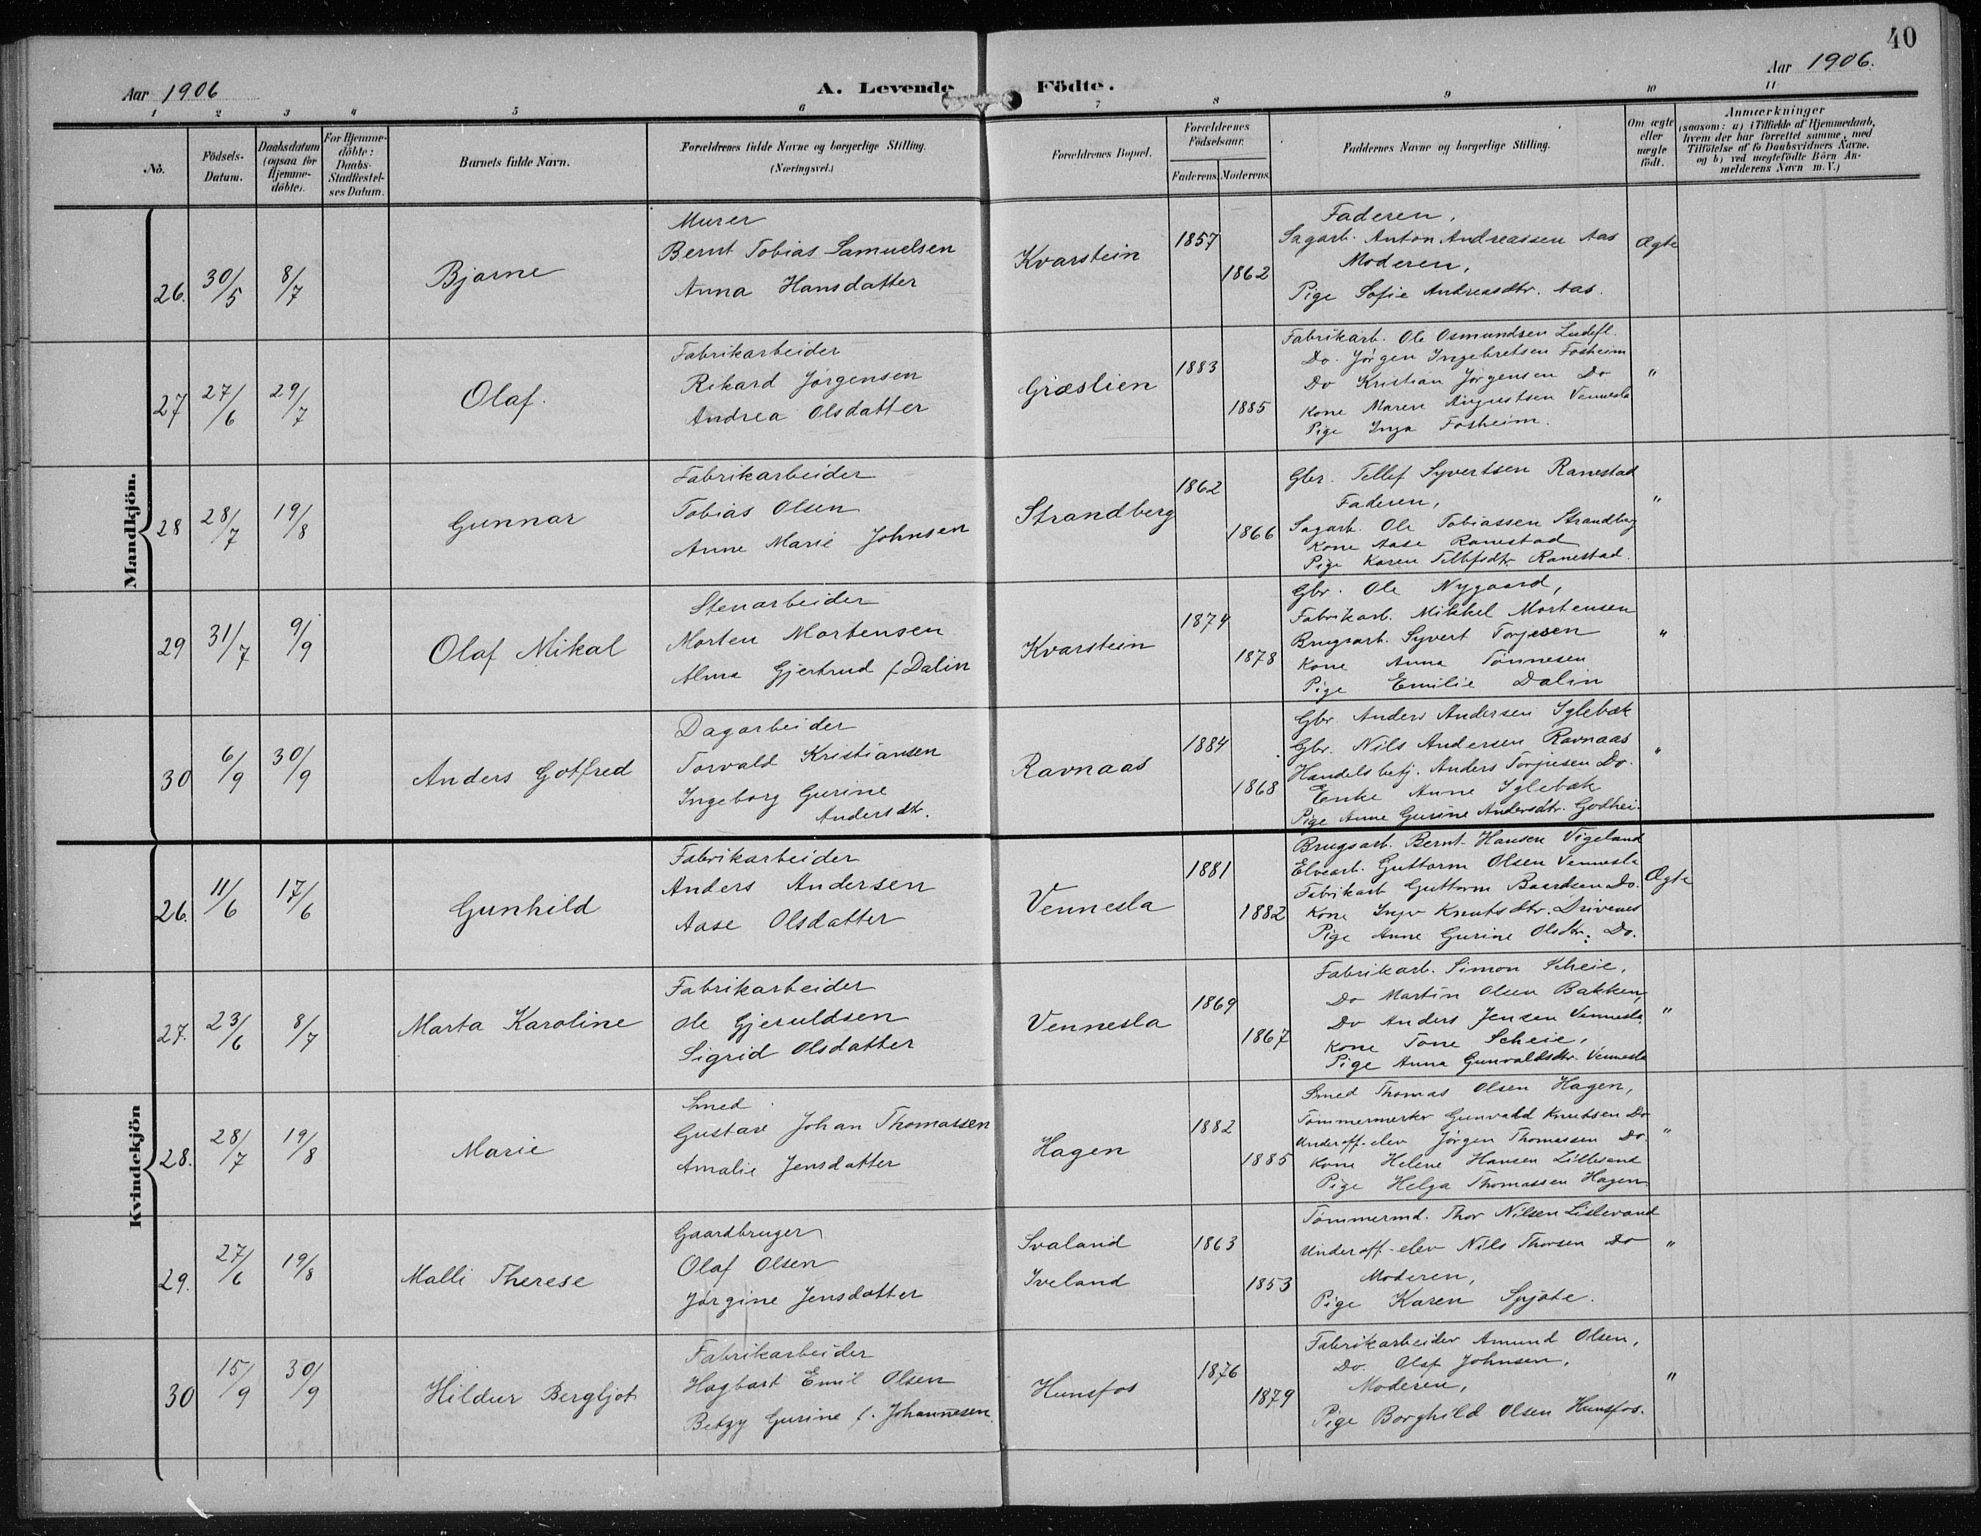 40
Aar 1906
A. Levende Födte.
Aar 1906.
1 2 3 4 5 6 7 8 9 10 11
No.
Födsels-Datum.
Daabsdatum (ogsaa for Hjemme-döbte).
For Hjemme-döbte: Daabs-Stadfæstel-ses Datum.
Barnets fulde Navn.
Forældrenes fulde Navne og borgerlige Stilling.
(Næringsvei.)
Forældrenes Bopæl.
Forældrenes Födselsaar.
Faderens. Moderens.
Faddernes Navne og borgerlige Stilling.
Om ægte eller uægte födt.
Anmærkninger
(saasom: a) i Tilfælde af Hjemmedaab, hvem der har forrettet samme, med Tilföielse af to Daabsvidners Navne. og b) ved uægtefödte Börn An-melderens Navn m. V.)
Mandkjön.
26. 30/5 8/7
Bjarne
Murer
Bernt Tobias Samuelsen
Anna Hansdatter
Kvarstein
1857
1862
Faderen,
Sagarb. Anton Andreassen Aas
Moderen,
Pige Sofie Andreasdtr. Aas.
Ægte
27 27/6 29/7
Olaf.
Fabrikarbeider
Rikard Jørgensen
Andrea Olsdatter
Græslien
1883
1885
Fabrikarb. Ole Osmundsen
Do. Jørgen Ingebretsen Fosheim
Do Kristian Jørgensen Do
Kone Maren Augustsen Vennesla
Pige Inga Fosheim.
"
28 28/7 19/8
Gunnar
Fabrikarbeider
Tobias Olsen
Anne Marie Johnsen
Strandberg
1862
1866
Gbr. Tellef Syvertsen Ranestad
Faderen,
Sagarb. Ole Tobiassen Strandberg
Kone Aase Ranestad
Pige Karen Tellefsdtr. Ranestad.
"
29 31/7 9/9
Olaf Mikal
Stenarbeider
Morten Mortensen
Alma Gjertrud f. Dalin
Kvarstein
1874
1878
Gbr. Ole Nygaard,
Fabrikarb. Mikkel Mortensen
Brugsarb. Syvert Torjesen
Kone Anna Tønnesen
Pige Emilie Dalin
"
30 6/9 30/9
Anders Gotfred
Dagarbeider
Torvald Kristiansen
Ingeborg Gurine
Andersdtr.
Ravnaas
1884
1868
Gbr Anders Andersen Iglebæk
Gbr. Nils Andersen Ravnaas
Handelsbetj. Anders Torjusen Do.
Enke Anne Iglebæk
Pige Anne Gurine Andersdtr. Godhei.
"
Kvindekjön
26. 11/6 17/6
Gunhild
Fabrikarbeider
Anders Andersen
Aase Olsdatter
Vennesla
1881
1882
Brugsarb. Bernt Hansen Vigeland
Elvearb. Guttorm Olsen Vennesla
Fabrikarb Guttorm Baardsen Do.
Kone Inger Knutsdtr. Drivenes
Pige Anne Gurine Olsdtr. Do.
Ægte
27. 23/6 8/7
Marta Karoline
Fabrikarbeider
Ole Gjeruldsen
Sigrid Olsdatter
Vennesla
1869
1867
Fabrikarb. Simon Scheie,
Do Martin Olsen Bakken,
Do Anders Jensen Vennesla,
Kone Tone Scheie,
Pige Anna Gunvaldsdtr. Vennesla
"
28. 28/7 19/8
Marie
Smed
Gustav Johan Thomassen
Amalie Jensdatter
Hagen
1882
1885
Smed Thomas Olsen Hagen,
Tømmermerker Gunvald Knutsen Do
Underoff-elev Jørgen Thomassen Do.
Kone Helene Hansen Lillesand
Pige Helga Thomassen Hagen
"
29. 27/6 19/8
Malli Therese
Gaardbruger
Olaf Olsen
Jørgine Jensdatter
Svaland
Iveland
1863
1853
Tømmermd. Thor Nilsen Lislevand
Underoff-elev Nils Thorsen Do
Moderen,
Pige Karen Spjote.
"
30 15/9 30/9
Hildur Bergljot
Fabrikarbeider
Hagbart Emil Olsen
Betzy Gurine f. Johannesen
Hunsfos
1876
1879
Fabrikarbeider Amund Olsen,
Do. Olaf Johnsen,
Moderen,
Pige Borghild Olsen Hunsfos.
"